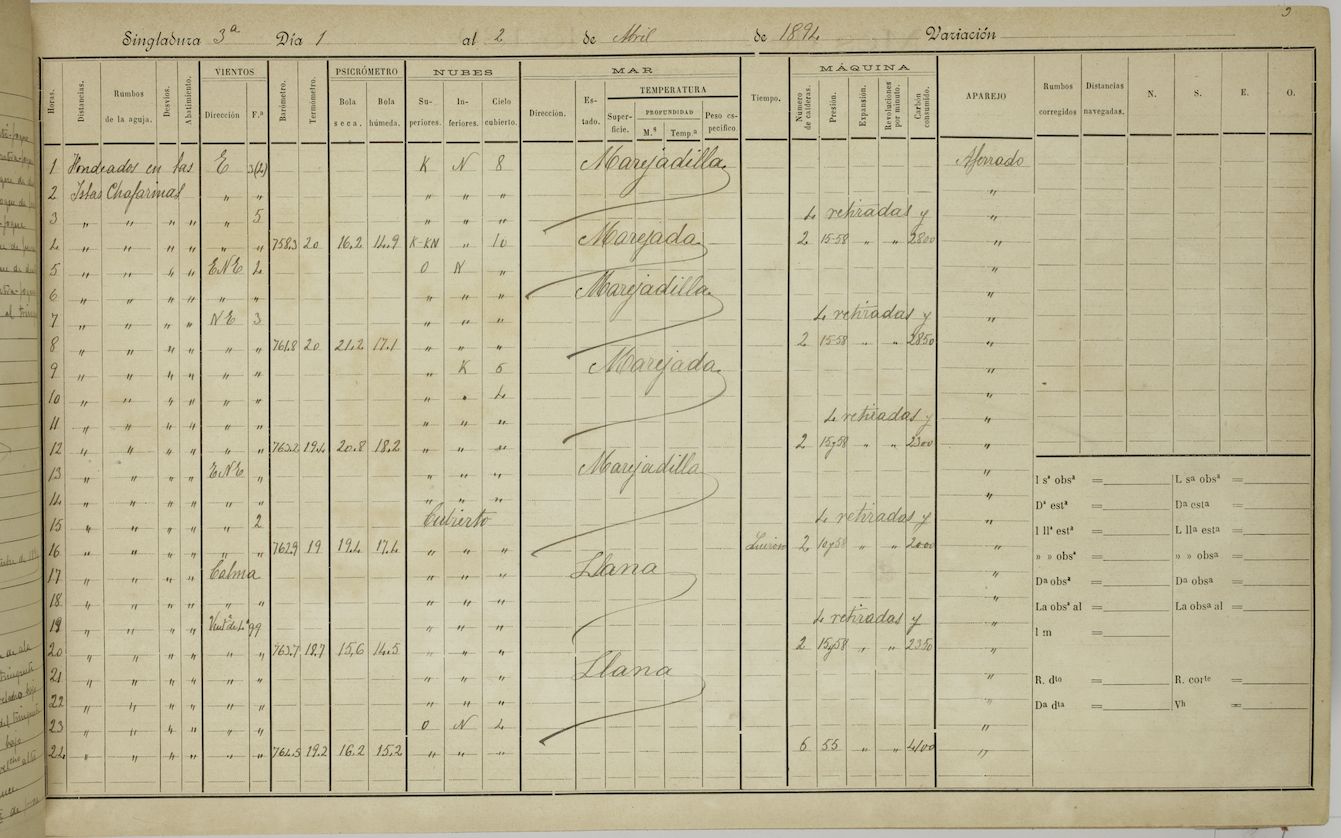 3
Singladura 3ª Día 1 al 2 de Abril de 1894 Variación
Horas. Distancias. Rumbos de la aguja. Desvíos. Abatimiento. VIENTOS Dirección F.ª Barómetro. Termómetro. PSICRÓMETRO Bola seca. Bola húmeda. NUBES Superiores. Inferiores. Cielo cubierto. MAR Dirección. Estado. TEMPERATURA Superficie. PROFUNDIDAD M.s Temp.ª Peso específico. Tiempo. MÁQUINA Número de calderas. Presión. Expansión. Revoluciones por minuto. Carbón consumido. APAREJO Rumbos corregidos Distancias navegadas. N. S. E. O.
1 Fondeados en las E 3(4) K N 8 Marejadilla Aferrado
2 Islas Chafarinas " " " " " "
3 " " " " " 5 " " " 4 retiradas y "
4 " " " " " " 758.3 20 16.2 14.9 K-KN " 10 Marejada 2 15-58 " " 2800 "
5 " " " " ENE 4 O N " "
6 " " " " " " " " " Marejadilla "
7 " " " " NE 3 " " " 4 retiradas y "
8 " " " " " " 761.8 20 21.2 17.1 " " " 2 15-58 " " 2850 "
9 " " " " " " " K 6 Marejada "
10 " " " " " " " " 4 "
11 " " " " " " " " " 4 retiradas y "
12 " " " " " " 763.2 19.4 20.8 18.2 " " " 2 15y58 " " 2300 "
13 " " " " ENE " " " " Marejadilla "
14 " " " " " " " " " "
15 " " " " " 2 Cubierto 4 retiradas y "
16 " " " " " " 762.9 19 19.4 17.4 " " " 2 10y58 " " 2000 "
17 " " " " Calma " " " Llana "
18 " " " " " " " " " "
19 " " " " " " " 4 retiradas y
20 " " " " " " 763.7 18.7 15,6 14.5 " " " 2 15y58 " " 2350 "
21 " " " " " " " " " Llana "
22 " " " " " " " " "
23 " " " " " " O N 4 "
24 " " " " " " 764.5 19.2 16.2 15.2 " " " 6 55 " " 4100 "
l sª obsª = L sa obsª =
Dª estª = Da esta =
l llª estª = L lla esta =
» » obsª = » » obsa =
Da obsª = Da obsa =
La obsª al = La obsa al =
l:m =
R. dto = R. corte =
Da dta = Vh =